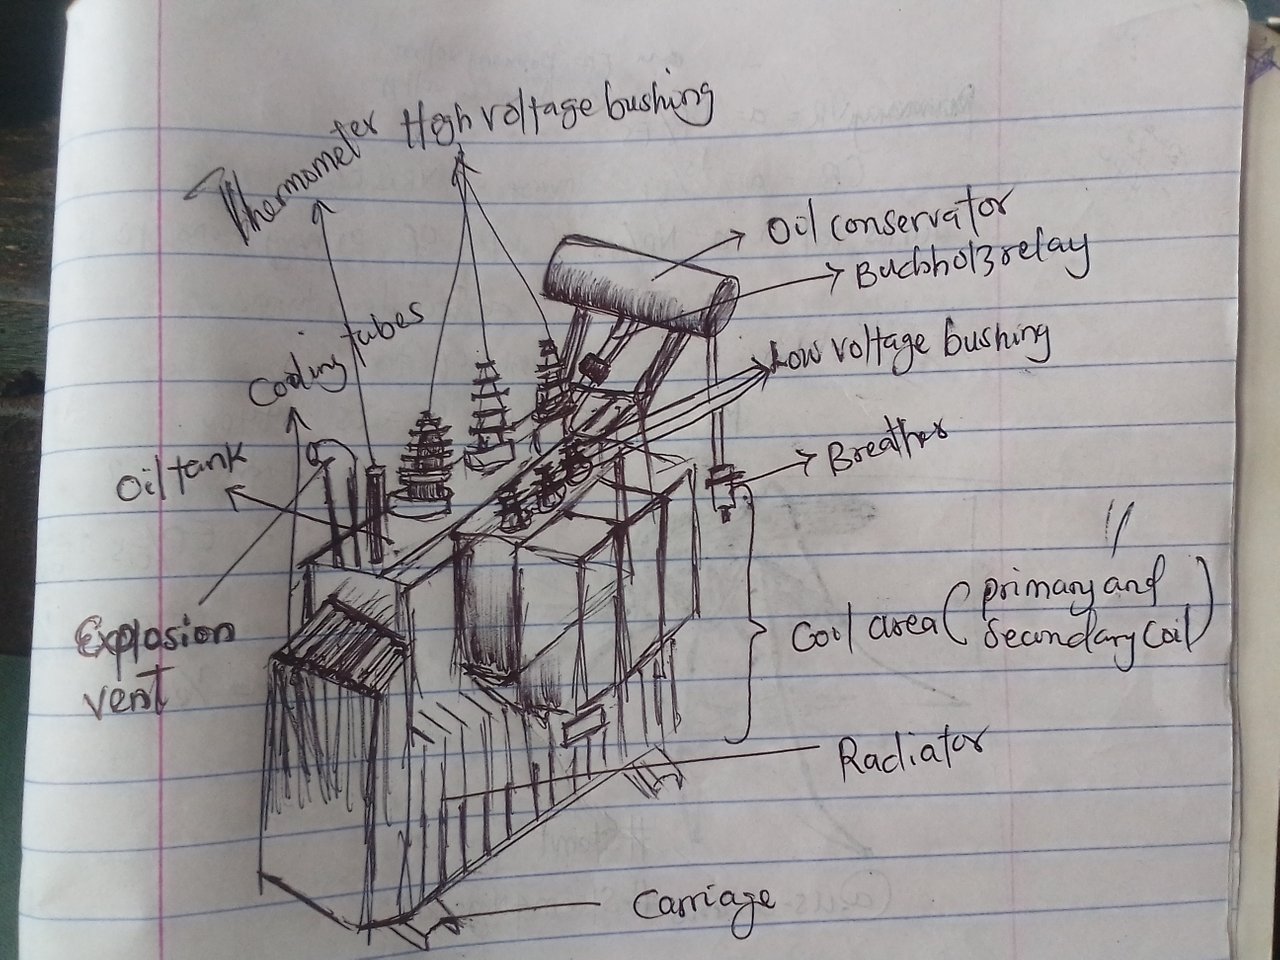 High voltage bushing
Thermometer
Oil conservator
Buchholz relay
Cooling tubes
Low voltage bushing
Oil tank
Breather
Explosion
vent
Coil area (primary and
secondary coil)
Radiator
Carriage